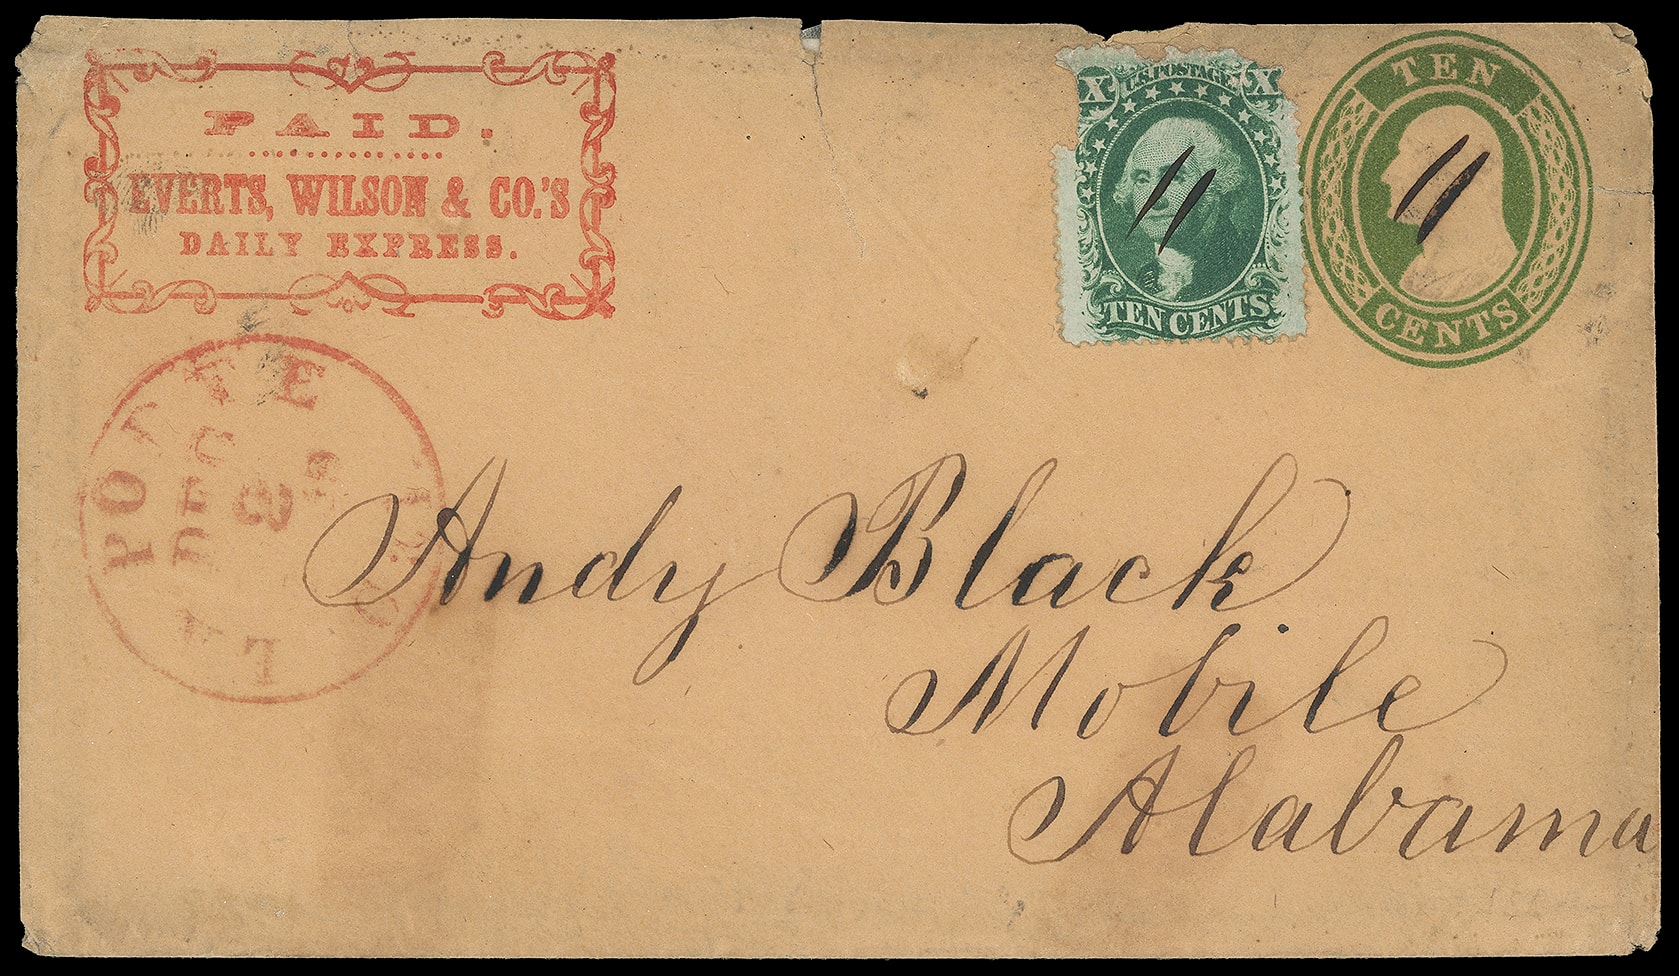 PAID.
EVERTS, WILSON & CO.'S
DAILY EXPRESS.
X U.S. POSTAGE X
TEN CENTS
TEN
CENTS
LA PORTE
DEC
Andy Black
Mobile
Alabama